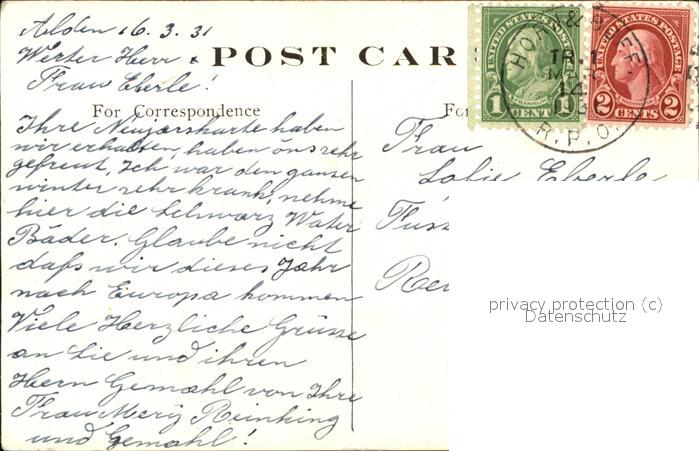 Alden 16.3.31
Werter Herr &
Frau Eberle!
POST CAR
For Correspondence
Ihre Neujarskarte haben
wir erhalten, haben öns sehr
gefreut, Ich war den gansen
winter sehr krank, nehme
hier die Schwarz Water
Bäder. Glaube nicht
dafs wir dieses Jahr
nach Europa kommen
Viele Herzliche Grüsse
an Sie und ihren
Herrn Gemahl von Ihre
Frau Reinking
und Gemahl!
UNITED STATES POSTAGE
FRANKLIN
1 CENT 1
UNITED STATES POSTAGE
2 CENTS 2
HOR
TR.
MA
14
R.P.O.
Fo
Frau
Eberle
privacy protection (c)
Datenschutz